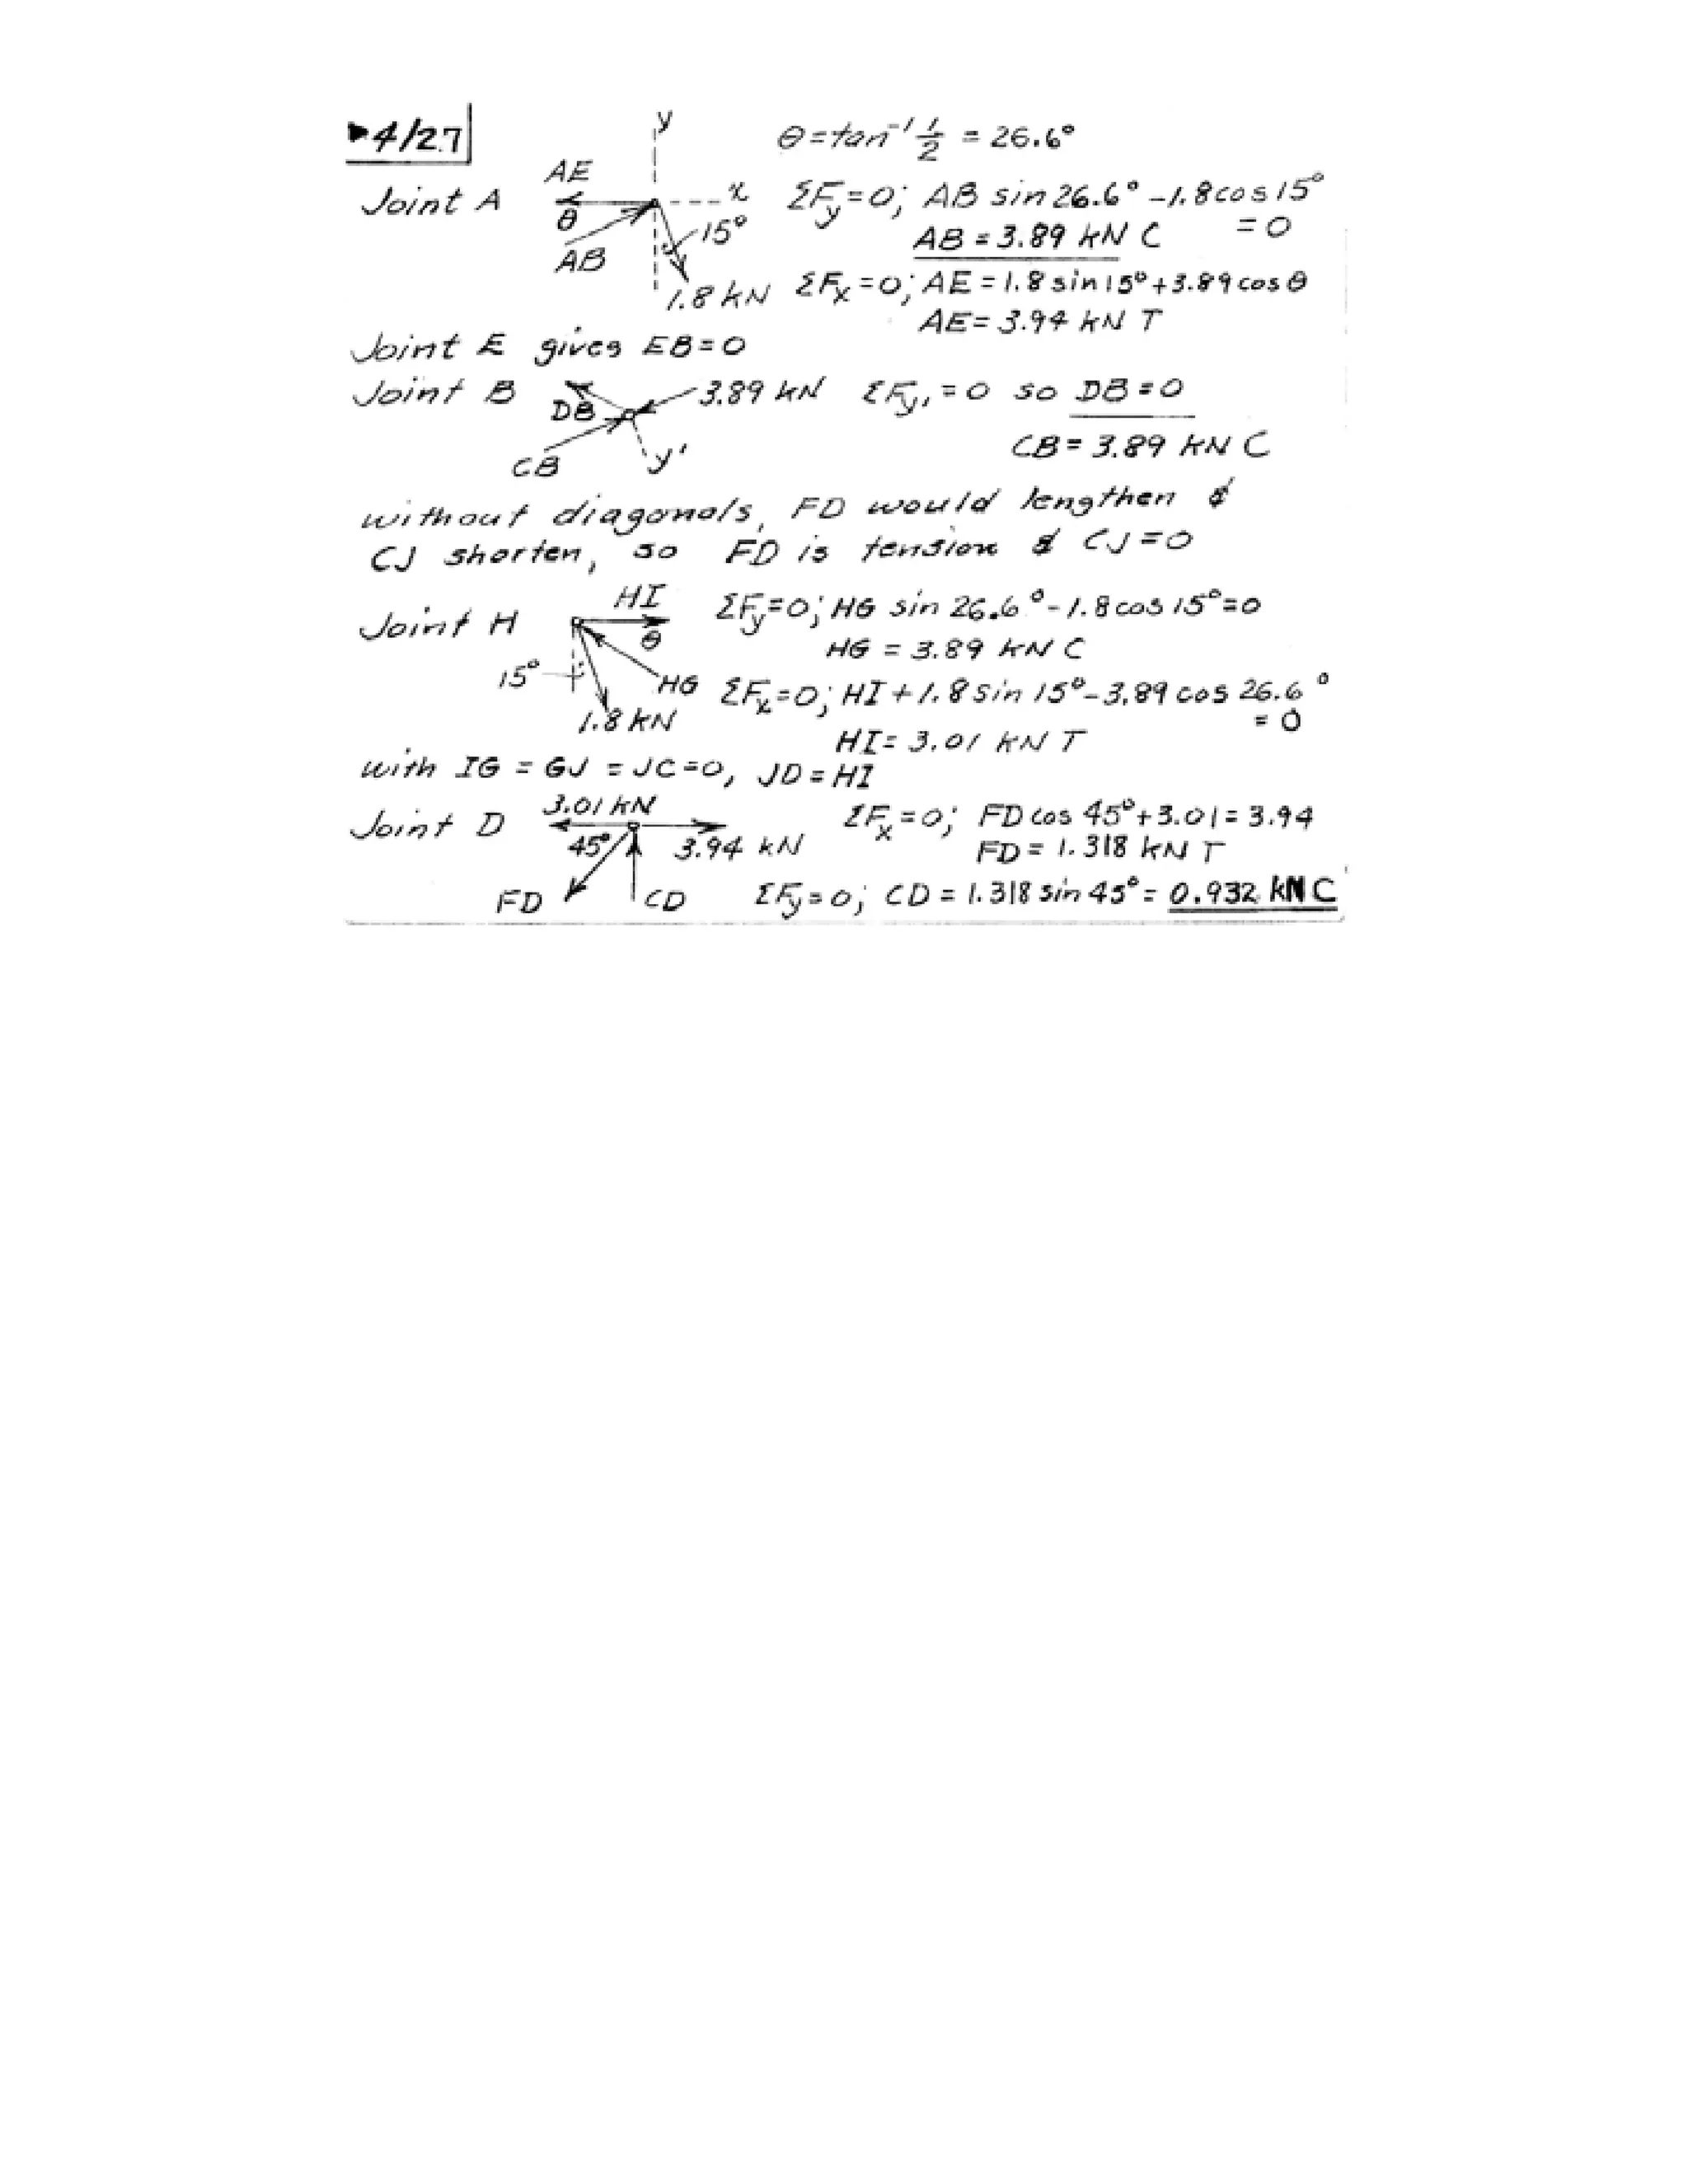 4/27
θ = tan⁻¹ 1/2 = 26.6°
y
AE
Joint A
x
θ
15°
AB
1.8 kN
ΣFy = 0; AB sin 26.6° - 1.8 cos 15° = 0
AB = 3.89 kN C
ΣFx = 0; AE = 1.8 sin 15° + 3.89 cos θ
AE = 3.94 kN T
Joint E gives EB = 0
Joint B
DB
3.89 kN
ΣFy' = 0 so DB = 0
CB
y'
CB = 3.89 kN C
without diagonals, FD would lengthen &
CJ shorten, so FD is tension & CJ = 0
Joint H
HI
θ
15°
HG
1.8 kN
ΣFy = 0; HG sin 26.6° - 1.8 cos 15° = 0
HG = 3.89 kN C
ΣFx = 0; HI + 1.8 sin 15° - 3.89 cos 26.6° = 0
HI = 3.01 kN T
with IG = GJ = JC = 0, JD = HI
Joint D
3.01 kN
45°
3.94 kN
FD
CD
ΣFx = 0; FD cos 45° + 3.01 = 3.94
FD = 1.318 kN T
ΣFy = 0; CD = 1.318 sin 45° = 0.932 kN C